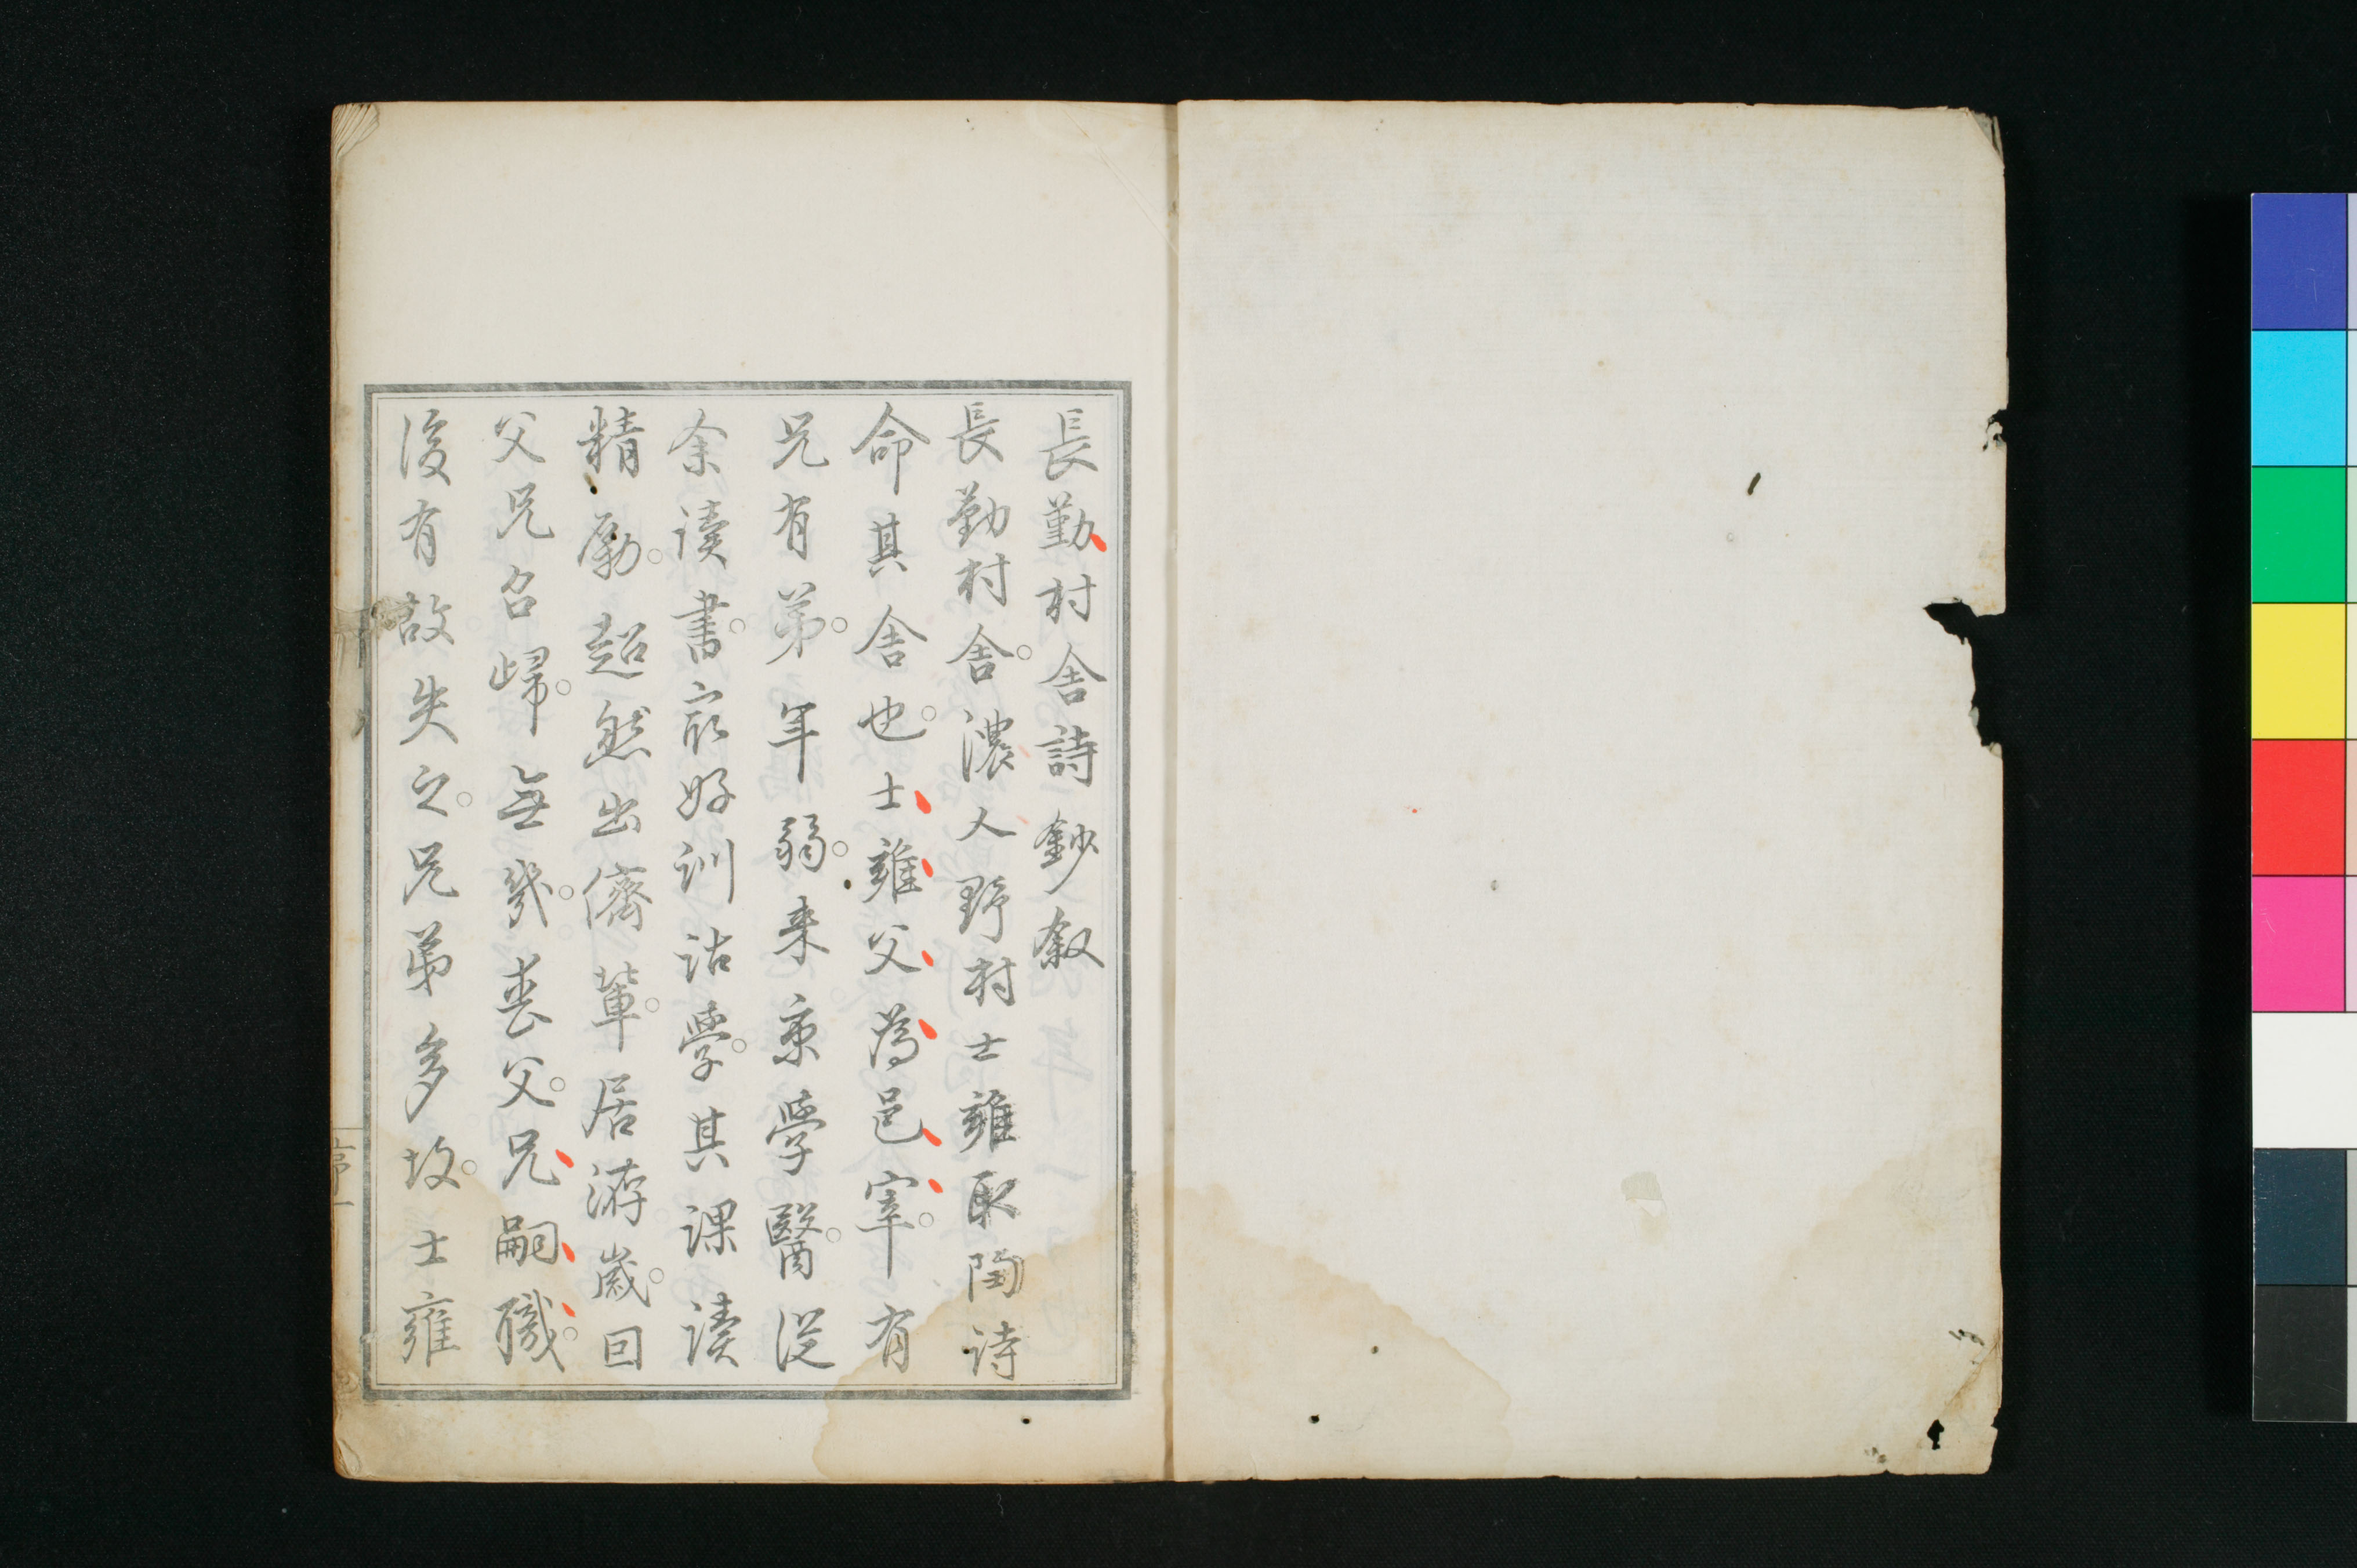 長勤村舍詩鈔叙
長勤村舍。濃人野村士雍取陶詩
命其舍也。士雍父為邑宰。有
兄有弟。年弱。来京學醫。従
余讀書。最好訓詁學。其課讀
精勵。超然出儕輩。居游歲。回
父兄召歸。無幾。喪父。兄嗣職。
後有故失之。兄弟多故。士雍
序一